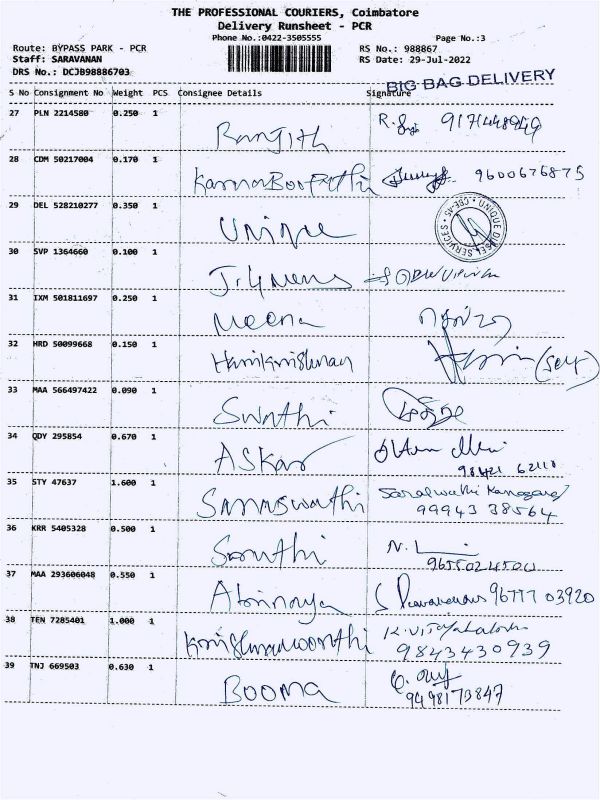 THE PROFESSIONAL COURIERS, Coimbatore
Delivery Runsheet - PCR
Phone No.:0422-3505555 Page No.:3
Route: BYPASS PARK - PCR RS No.: 988867
Staff: SARAVANAN RS Date: 29-Jul-2022
DRS No.: DCJB98886703
BIG BAG DELIVERY
S No Consignment No Weight PCS Consignee Details Signature
27 PLN 2214580 0.250 1 Ranjith R.
28 CDM 50217004 0.170 1 9600676875
29 DEL 528210277 0.350 1 Unique UNIQUE DIESEL SERVICES
30 SVP 1364660 0.100 1
31 IXM 501811697 0.250 1 Meena
32 HRD 50099668 0.150 1 Harikrishnan (self)
33 MAA 566497422 0.090 1 Swathi
34 QDY 295854 0.670 1 Askar
98421 62110
35 STY 47637 1.600 1 Saraswathi
99943 38564
36 KRR 5405328 0.500 1 Santhi N.
37 MAA 293606048 0.550 1 Abinaya 96777 03920
38 TEN 7285401 1.000 1 Krishnamoorthi
9843430939
39 TNJ 669503 0.630 1 Booma
9498173847